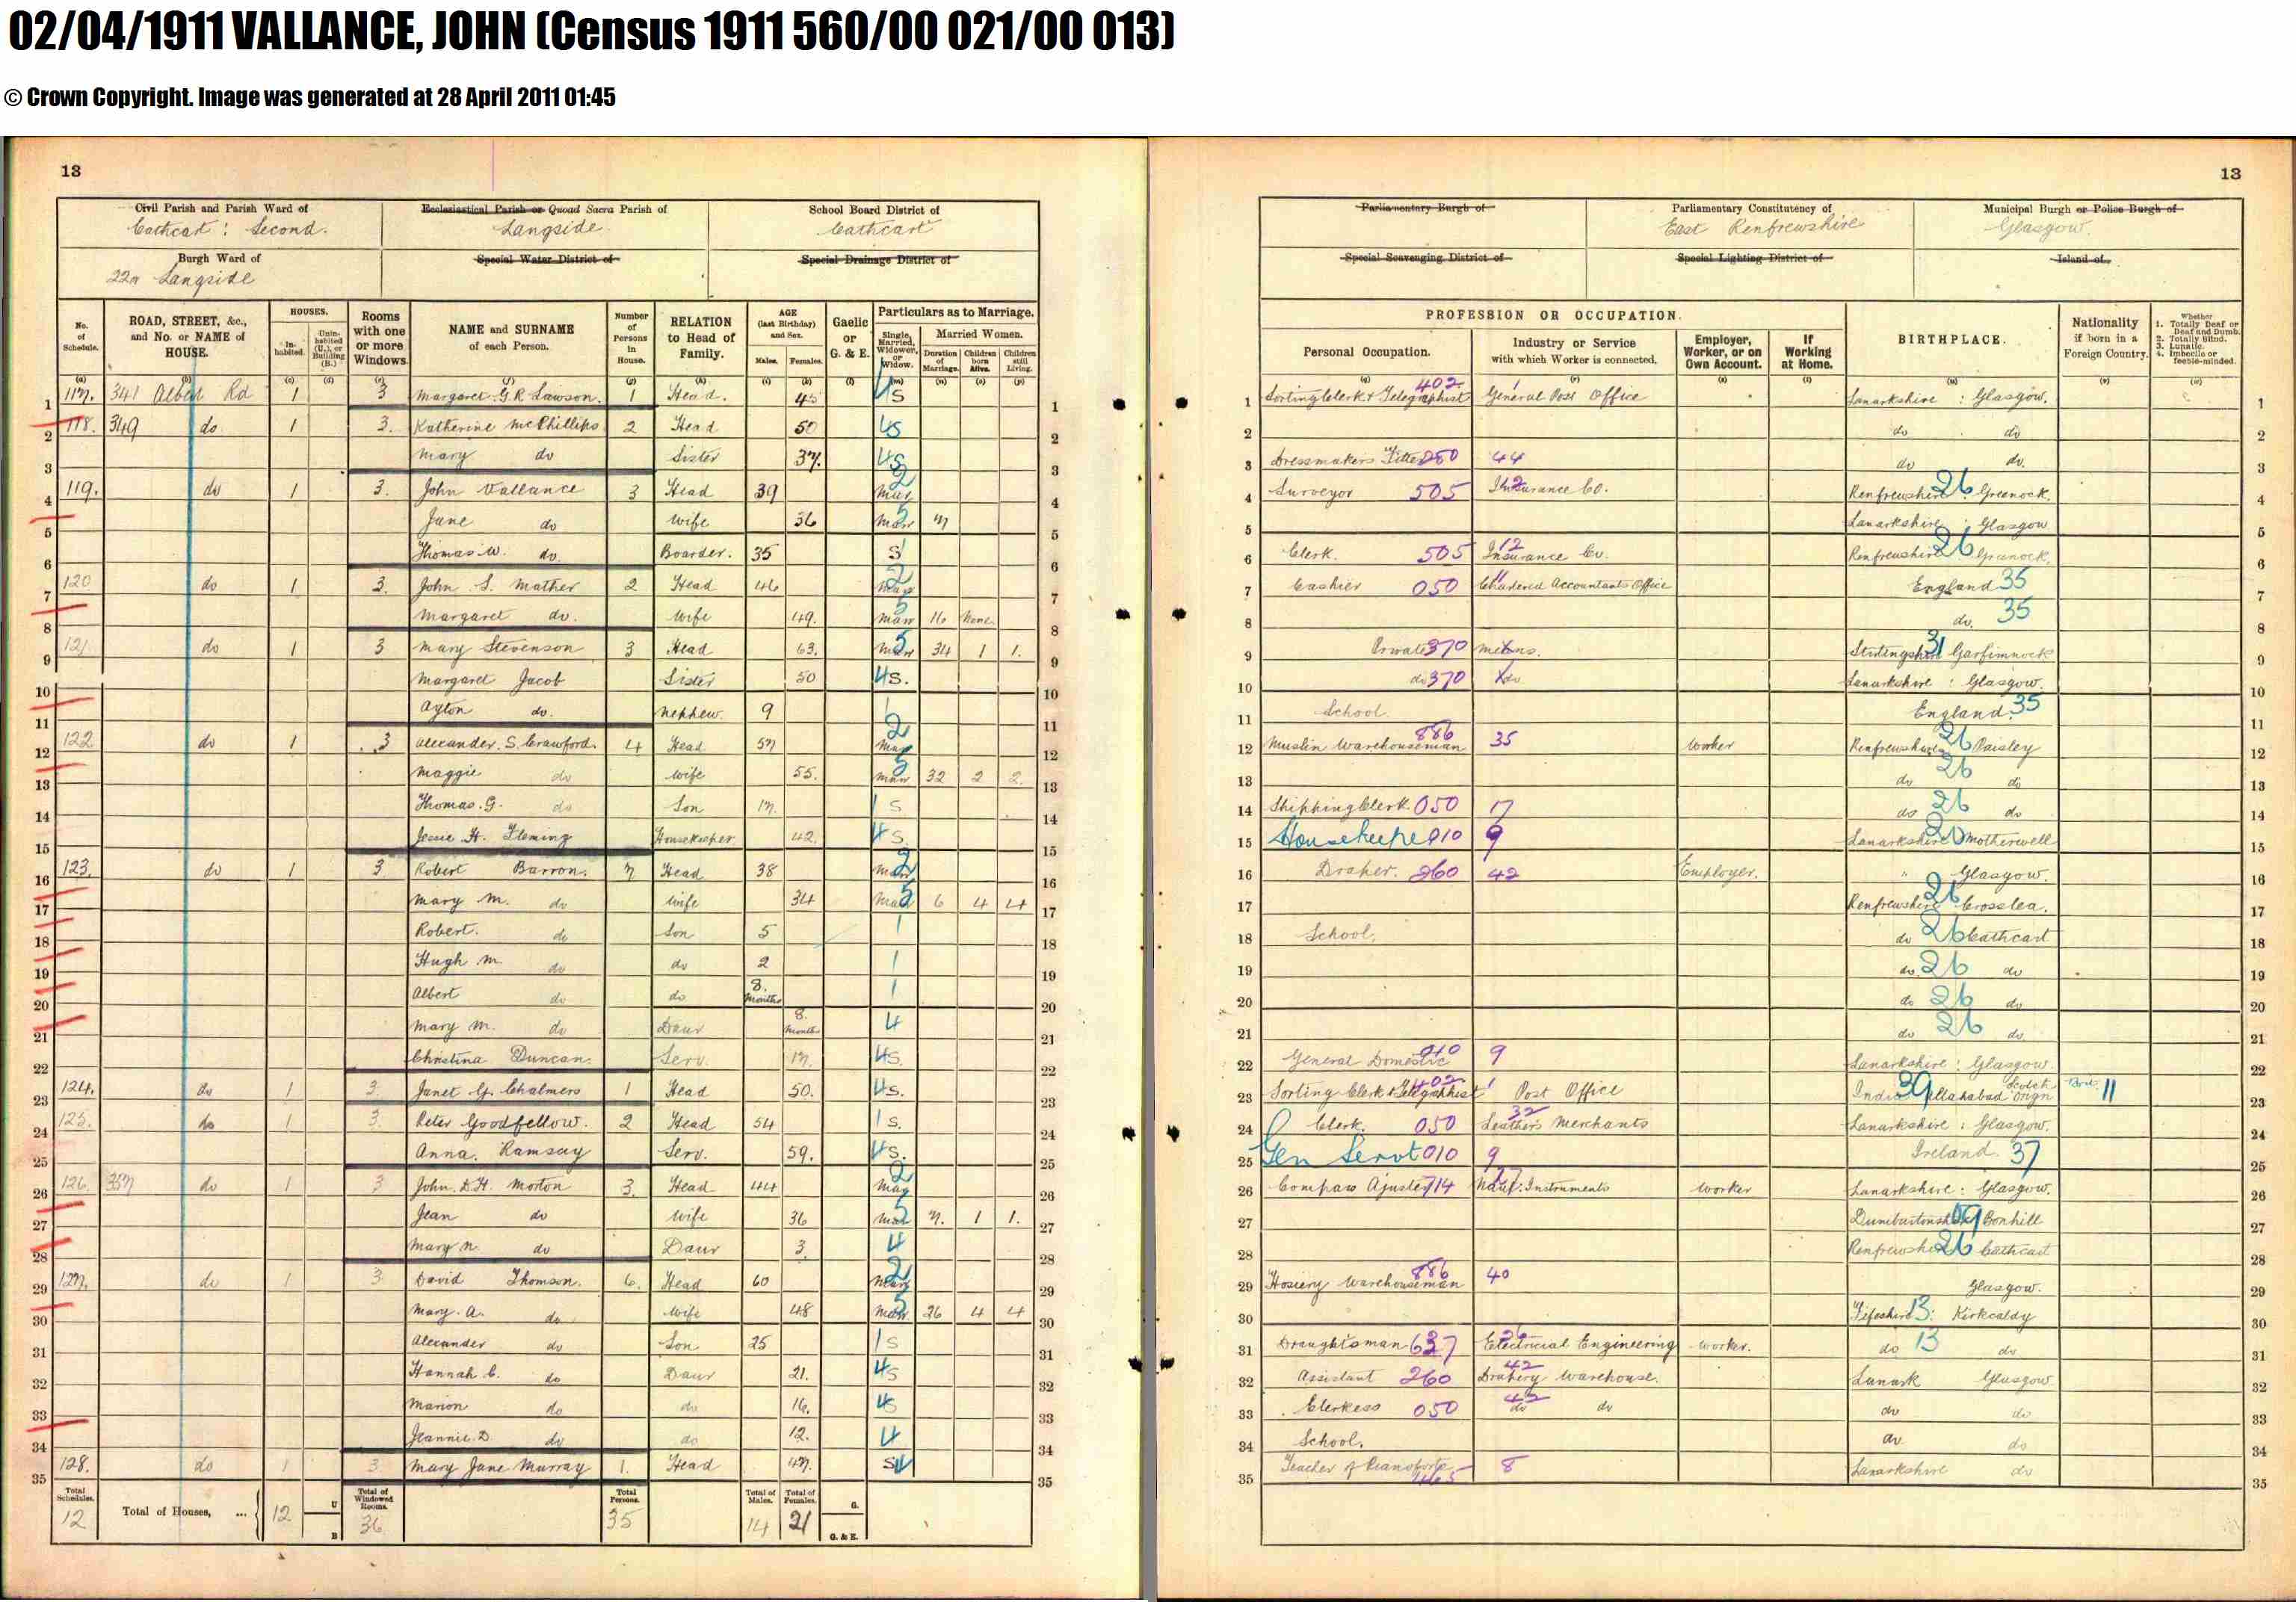 02/04/1911 VALLANCE, JOHN (Census 1911 560/00 021/00 013)
© Crown Copyright. Image was generated at 28 April 2011 01:45
13
Civil Parish and Parish Ward of Ecclesiastical Parish or Quoad Sacra Parish of School Board District of
Cathcart : Second. Langside. Cathcart
Burgh Ward of Special Water District of Special Drainage District of
22nd Langside
No. of Schedule. ROAD, STREET, &c., and No. or NAME of HOUSE. HOUSES. Inhabited. Uninhabited (U.), or Building (B.) Rooms with one or more Windows. NAME and SURNAME of each Person. Number of Persons in House. RELATION to Head of Family. AGE (last Birthday) and Sex. Males. Females. Gaelic or G. & E. Particulars as to Marriage. Single, Married, Widower, or Widow. Married Women. Duration of Marriage. Children born Alive. Children still Living.
(a) (b) (c) (d) (e) (f) (g) (h) (i) (k) (l) (m) (n) (o) (p)
1 117. 341 Albert Rd 1 3 Margaret G.R Lawson. 1 Head. 45 4 S 1
2 118. 349 do 1 3. Katherine McPhillips 2 Head 50 4S 2
3 Mary do Sister 37. 4S 3
4 119. do 1 3. John Vallance 3 Head 39 2 Mar 4
5 Jane do Wife 36 5 Marr 7 5
6 Thomas W. do Boarder. 35 S 6
7 120 do 1 3. John S. Mather 2 Head 46 2 Mar 7
8 Margaret do. Wife 49. 5 Marr 16 None 8
9 121 do 1 3 Mary Stevenson 3 Head 63. 5 Marr 34 1 1. 9
10 Margaret Jacob Sister 50 4S. 10
11 Ayton do. Nephew. 9 1 11
12 122 do 1 3 Alexander. S. Crawford. 4 Head 57 2 Mar 12
13 Maggie do Wife 55. 5 Marr 32 2 2. 13
14 Thomas. G. do Son 17. 1 S 14
15 Jessie H. Fleming Housekeeper 42. 4 S. 15
16 123. do 1 3 Robert Barron. 7 Head 38 2 Marr 16
17 Mary M. do Wife 34 5 Mar 6 4 4 17
18 Robert. do Son 5 1 18
19 Hugh M. do do 2 1 19
20 Albert do do 8. Months 1 20
21 Mary M. do Daur 8. Months 4 21
22 Christina Duncan. Serv. 17. 4S. 22
23 124. do 1 3 Janet G. Chalmers 1 Head 50. 4S. 23
24 125. do 1 3. Peter Goodfellow. 2 Head 54 1 S. 24
25 Anna. Ramsay Serv. 59. 4S. 25
26 126. 357 do 1 3 John. D.H. Morton 3. Head 44 2 Mar 26
27 Jean do Wife 36 5 Mar 7. 1 1. 27
28 Mary N. do Daur 3. 4 28
29 127. do 1 3. David Thomson. 6. Head 60 2 Mar 29
30 Mary. A. do Wife 48 5 Marr 26 4 4 30
31 Alexander do Son 25 1 S 31
32 Hannah C. do Daur 21. 4S 32
33 Marion do do 16. 4S 33
34 Jeannie. D. do do 12. 4 34
35 128. do 1 3. Mary Jane Murray 1. Head 47. S 35
Total Schedules. 12 Total of Houses, ... 12 U B Total of Windowed Rooms. 36 Total Persons. 35 Total of Males. 14 Total of Females. 21 G. G. & E.
13
Parliamentary Burgh of Parliamentary Constitutency of Municipal Burgh or Police Burgh of
East Renfrewshire Glasgow.
Special Scavenging District of Special Lighting District of Island of
PROFESSION OR OCCUPATION. BIRTHPLACE. Nationality if born in a Foreign Country. Whether 1. Totally Deaf or Deaf and Dumb. 2. Totally Blind. 3. Lunatic. 4. Imbecile or feeble-minded.
Personal Occupation. Industry or Service with which Worker is connected. Employer, Worker, or on Own Account. If Working at Home.
(q) (r) (s) (t) (u) (v) (w)
1 Sorting Clerk & Telegraphist 402 1 General Post Office Lanarkshire : Glasgow. 1
2 do do 2
3 Dressmakers Fitter 250 44 do do. 3
4 Surveyor 505 12 Insurance Co. Renfrewshire 26 Greenock. 4
5 Lanarkshire : Glasgow 5
6 Clerk. 505 12 Insurance Co. Renfrewshire 26 Greenock, 6
7 Cashier 050 Chartered Accountants Office England 35 7
8 do. 35 8
9 Private 370 means. Stirlingshire 31 9
10 do 370 X do Lanarkshire : Glasgow. 10
11 School. England. 35 11
12 Muslin Warehouseman 886 35 Worker Renfrewshire 26 Paisley 12
13 do 26 do 13
14 Shipping Clerk. 050 17 do 26 do 14
15 Housekeeper 010 9 Lanarkshire Motherwell 15
16 Draper. 260 42 Employer. " Glasgow. 16
17 Renfrewshire 26 Crosslea. 17
18 School. do 26 Cathcart 18
19 do. 26 do 19
20 do 26 do 20
21 do 26 do 21
22 General Domestic 010 9 Lanarkshire : Glasgow 22
23 Sorting Clerk & Telegraphist 402 1 Post Office India 39 Allahabad Scotch Orign Brit: 11 23
24 Clerk. 050 32 Leather Merchants Lanarkshire : Glasgow. 24
25 Gen Servt 010 9 Ireland. 37 25
26 Compass Ajuster 714 27 Naut: Instruments Worker Lanarkshire : Glasgow. 26
27 Dumbartonshire 09 Bonhill 27
28 Renfrewshire 26 Cathcart 28
29 Hosiery Warehouseman 886 40 Glasgow. 29
30 Fifeshire 13: Kirkcaldy 30
31 Draughtsman 637 26 Electricial Engineering Worker. do 13 do 31
32 Assistant 260 42 Drapery Warehouse. Lanark Glasgow 32
33 Clerkess 050 42 do do do do 33
34 School. do do 34
35 Teacher of Pianoforte 8 Lanarkshire do 35